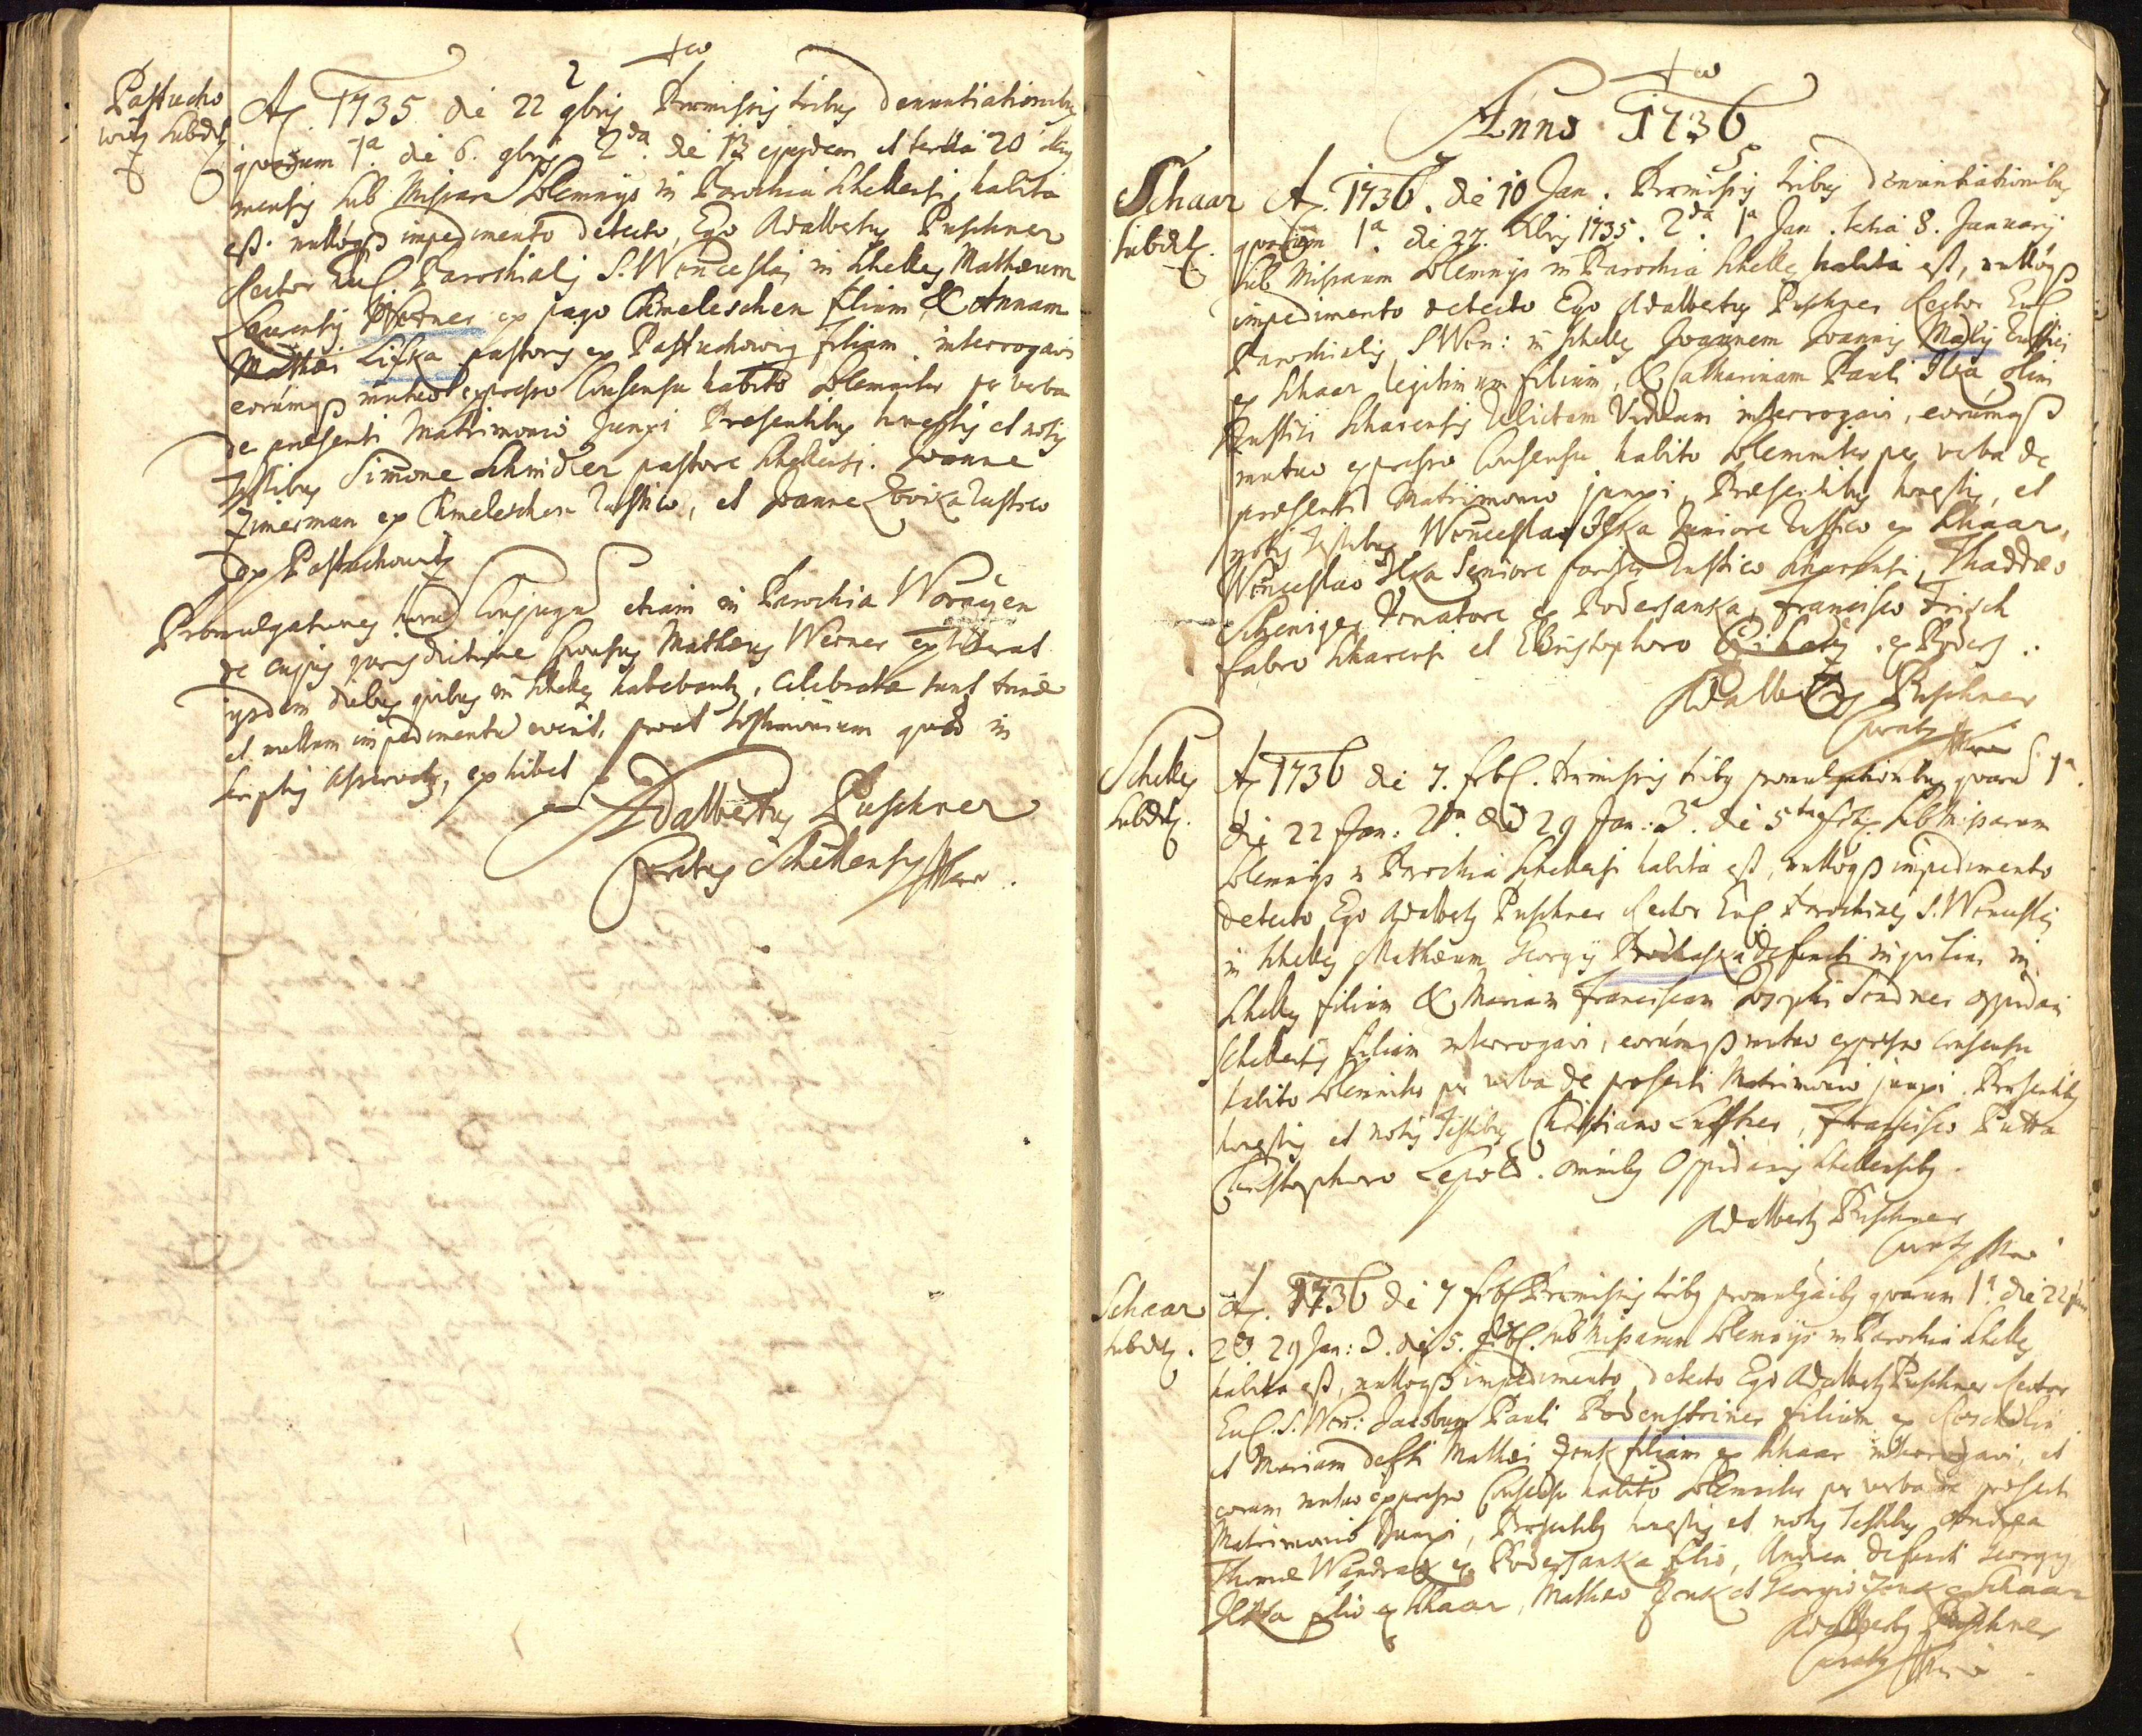 Pastucho
witz Subdit9
A. 1735 die 22 9bris Praemissis tribus Denuntiationibus
quarum 1a die 6. 9bris 2da die 13 ejusdem et tertia 20
mensis sub Missarum Solemnijs in Parochia Schellensi habita
est. nulloq3 impedimento detecto, Ego Adalbertus Puschner
Rector Eccl. Parochialis S. Wenceslai in Schelles Mathaeum
ex pago Chmeleschen filium & Annam
Mathaei Lifka pastoris ex Pastuchowitz filiam interrogavi
eorumq3 mutuo expresso Consensu habito Solemniter per verba
de praesenti Matrimonio Junxi Presentibus honestis et notis
Testibus Simone Schindler pastore Schellensi. Joanne
Zimerman ex Chmeleschen rustico, et Joanne rustico
ex Pastuchowitz
Promulgationes horum Conjugum etiam in Parochia
de cujus jurisdictione Sponsus Mathaeus Werner extiterat
ijsdem diebus quibus in Schelles habebantur, celebratae sunt
et nullum impedimentum evenit, prout testimonium quod in
Scriptis asservatur, exhibet
Adalbertus Puschner
Curatus Schellensis
Anno 1736
Schaar
Subdit.
A. 1736. die 10 Jan. Praemissis tribus Denuntiationibus
quarum 1a. die 27. Xbris 1735. 2da. 1a Jan. tertia 8. Januarij
sub Missarum Solemnijs in Parochia Schelles habita est, nulloq3
impedimento detecto Ego Adalbertus Puschner Rector Eccl
Parochialis S Wen: in Schelles Joannem Joannis Maly rustici
ex Schaar legitimum filium, & Catharinam Pauli Ilka olim
rustici Schaarensis relictam Viduam interrogavi, eorumq3
mutuo expresso Consensu habito Solemniter per verba de
praesenti Matrimonio junxi, Praesentibus honestis, et
notis Testibus Wenceslao Ilka Juniore rustico ex Schaar,
Wenceslao Ilka Seniore pariter rustico Schaarensi, Thaddaeo
Venatore ex Podersanka, Francisco Frisch
Fabro Schaarensi et Christophoro ex Poders.
Adalbertus Puschner
Curatus
Schelles
Subdit.
A 1736 die 7. Febr. Praemissis tribus promulgationibus quarum 1a.
die 22 Jan: 2da. die 29 Jan: 3. die 5ta Feb. sub Missarum
Solemnijs in Parochia Schellensi habita est, nulloq3 impedimento
detecto Ego Adalbertus Puschner Rector Eccl. Parochialis S. Wenceslai
in Schelles Mathaeum Georgij Prochaska defuncti inquilini in
Schelles filium & Mariam Franciscam Josephi Lindner oppidani
Schellensis filiam interrogavi, eorumq3 mutuo expresso consensu
habito Solemniter per verba de praesenti Matrimonio junxi. Praesentibus
honestis et notis Testibus Christiano Lufftner, Francisco Putta
Christophoro Lepold. omnibus Oppidanis Schellensibus.
Adalbertus Puschner
Curatus
Schaar
Subdit.
A. 1736 die 7 Febr. Praemissis tribus promulgaibus quarum 1a. die 22 Jan
2da 29 Jan: 3. die 5. Febr. sub Missarum Solemnijs in Parochia Schelles
habita est, nulloq3 impedimento detecto Ego Adalbertus Puschner Rector
Eccl. S. Wen: Jacobum Pauli Podensteiner filium ex
et Mariam defti Mathaei Zenk filiam ex Schaar interrogavi, et
eorum mutuo expresso Consensu habito Solemniter per verba de praesenti
Matrimonio Junxi, Praesentibus honestis et notis Testibus Andrea
Thomae Wandrak ex Podersanka filio, Andrea defuncti Georgij
Ilka filio ex Schaar, Mathaeo Zenk et Georgio Zenk ex Schaar
Adalbertus Puschner
Curatus